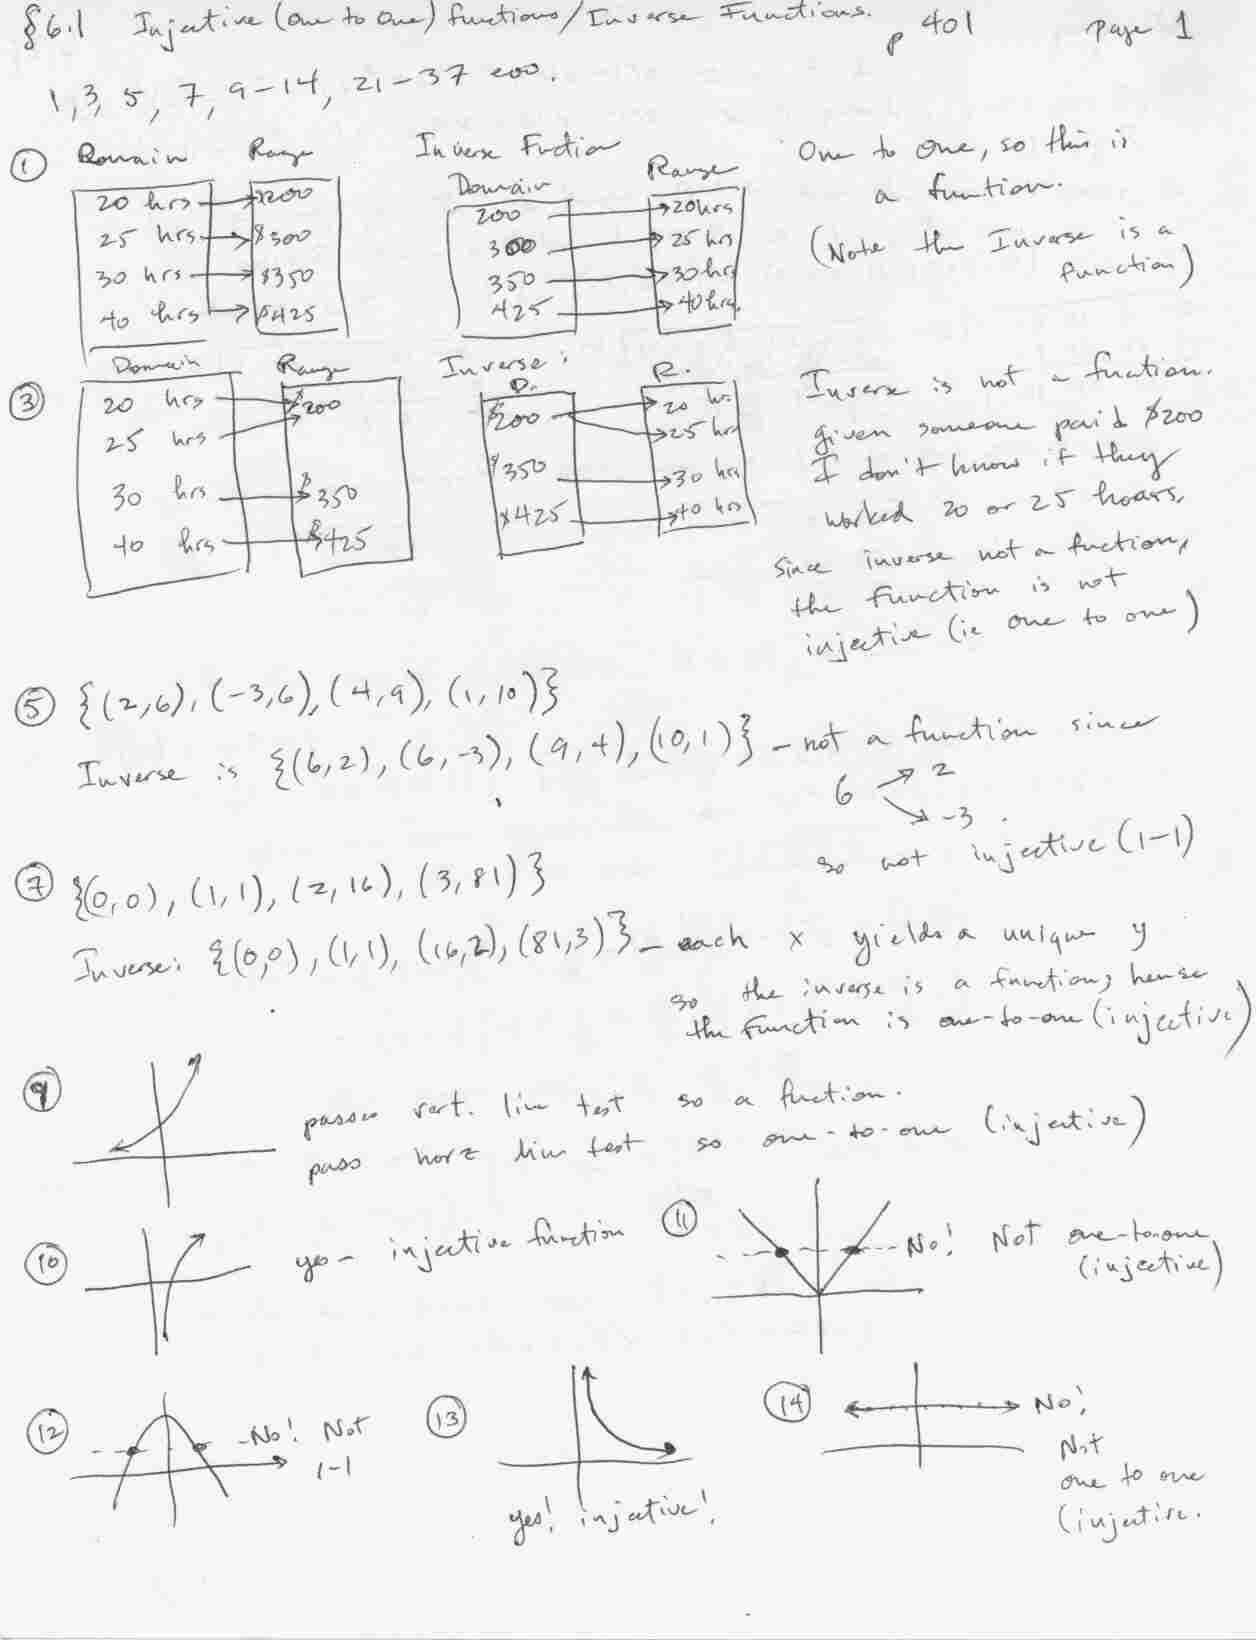 §6.1 Injective (one to one) functions/Inverse Functions. p 401 page 1
1, 3, 5, 7, 9-14, 21-37 eoo.
① Domain Range
20 hrs $200
25 hrs $300
30 hrs $350
40 hrs $425
Inverse Fuction
Domain Range
200 20hrs
300 25 hrs
350 30 hrs
425 40 hrs.
One to one, so this is
a function.
(Note the Inverse is a
function)
③ Domain Range
20 hrs $200
25 hrs
30 hrs $350
40 hrs $425
Inverse:
D. R.
$200 20 hrs
25 hrs
$350 30 hrs
$425 40 hrs
Inverse is not a fuction.
given someone paid $200
I don't know if they
worked 20 or 25 hours,
since inverse not a fuction,
the function is not
injective (ie one to one)
⑤ {(2,6), (-3,6), (4,9), (1,10)}
Inverse is {(6,2), (6,-3), (9,4), (10,1)} - not a function since
6 2
-3
so not injective (1-1)
⑦ {(0,0), (1,1), (2,16), (3,81)}
Inverse: {(0,0), (1,1), (16,2), (81,3)} - each x yields a unique y
so the inverse is a function; hense
the function is one-to-one (injective)
⑨ passes vert. line test so a fuction.
pass horz line test so one-to-one (injective)
⑩ yes - injective function
⑪ No! Not one-to-one
(injective)
⑫ No! Not
1-1
⑬ yes! injective!
⑭ No!
Not
one to one
(injective.